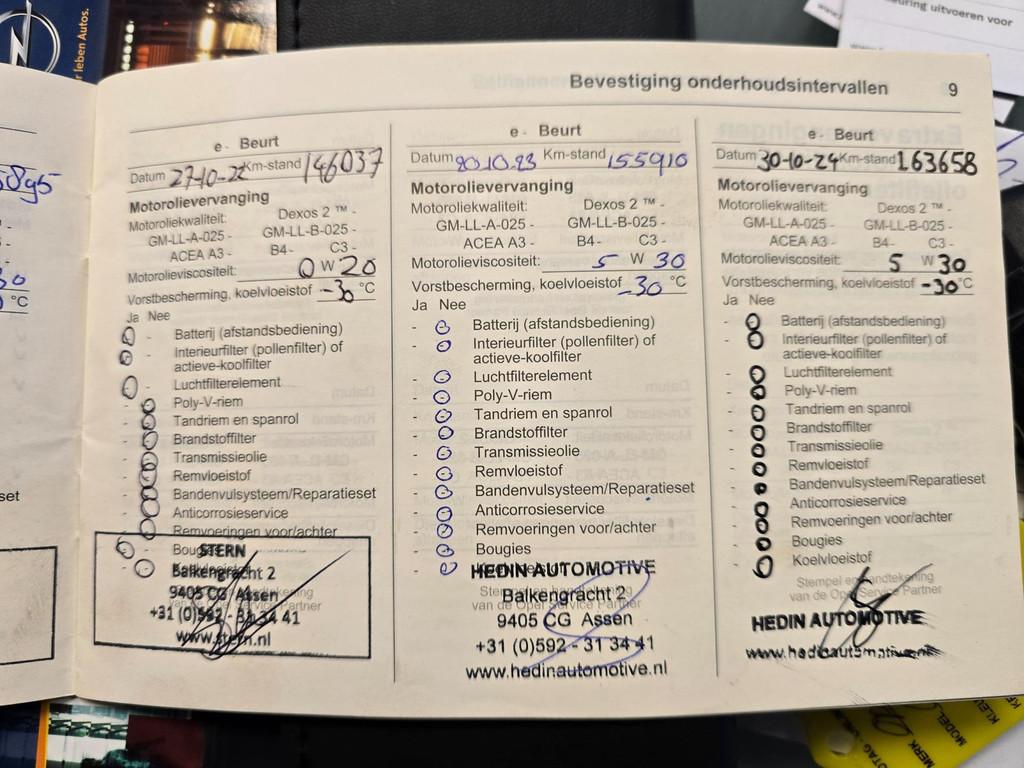 r leben Autos.
uring uitvoeren voor
Bevestiging onderhoudsintervallen 9
e - Beurt
Datum 27-10-22 Km-stand 146037
Motorolievervanging
Motoroliekwaliteit: Dexos 2 ™ -
GM-LL-A-025 - GM-LL-B-025 -
ACEA A3 - B4 - C3 -
Motorolieviscositeit: 0 W 20
Vorstbescherming, koelvloeistof -30 °C
Ja Nee
Batterij (afstandsbediening)
Interieurfilter (pollenfilter) of
actieve-koolfilter
Luchtfilterelement
Poly-V-riem
Tandriem en spanrol
Brandstoffilter
Transmissieolie
Remvloeistof
Bandenvulsysteem/Reparatieset
Anticorrosieservice
Remvoeringen voor/achter
Bougies
STERN
Balkengracht 2
9405 CG Assen
+31 (0)592 - 31 34 41
www.stern.nl
e - Beurt
Datum 20.10.23 Km-stand 155910
Motorolievervanging
Motoroliekwaliteit: Dexos 2 ™ -
GM-LL-A-025 - GM-LL-B-025 -
ACEA A3 - B4 - C3 -
Motorolieviscositeit: 5 W 30
Vorstbescherming, koelvloeistof -30 °C
Ja Nee
Batterij (afstandsbediening)
Interieurfilter (pollenfilter) of
actieve-koolfilter
Luchtfilterelement
Poly-V-riem
Tandriem en spanrol
Brandstoffilter
Transmissieolie
Remvloeistof
Bandenvulsysteem/Reparatieset
Anticorrosieservice
Remvoeringen voor/achter
Bougies
HEDIN AUTOMOTIVE
van de Opel Service Partner
Balkengracht 2
9405 CG Assen
+31 (0)592 - 31 34 41
www.hedinautomotive.nl
e - Beurt
Datum 30-10-24 Km-stand 163658
Motorolievervanging
Motoroliekwaliteit: Dexos 2 ™ -
GM-LL-A-025 - GM-LL-B-025 -
ACEA A3 - B4 - C3 -
Motorolieviscositeit: 5 W 30
Vorstbescherming, koelvloeistof -30 °C
Ja Nee
Batterij (afstandsbediening)
Interieurfilter (pollenfilter) of
actieve-koolfilter
Luchtfilterelement
Poly-V-riem
Tandriem en spanrol
Brandstoffilter
Transmissieolie
Remvloeistof
Bandenvulsysteem/Reparatieset
Anticorrosieservice
Remvoeringen voor/achter
Bougies
Koelvloeistof
Stempel en handtekening
van de Opel Service Partner
HEDIN AUTOMOTIVE
www.hedinautomotive.nl
set
°C
MERK
MODEL